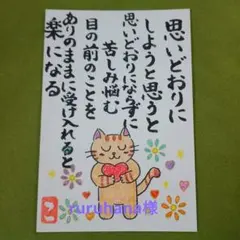 思いどおりに
しようと思うと
思いどおりにならずに
苦しみ悩む
目の前のことを
ありのままに受け入れると
楽になる
ruruhana様